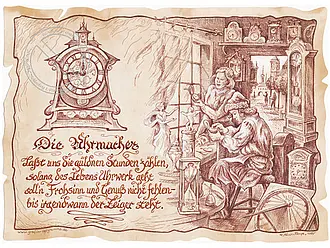 Die Uhrmacher
Laßt uns die güldnen Stunden zählen,
solang des Lebens Uhrwerk geht
soll'n Frohsinn und Genuß nicht fehlen-
bis irgendwann der Zeiger steht.